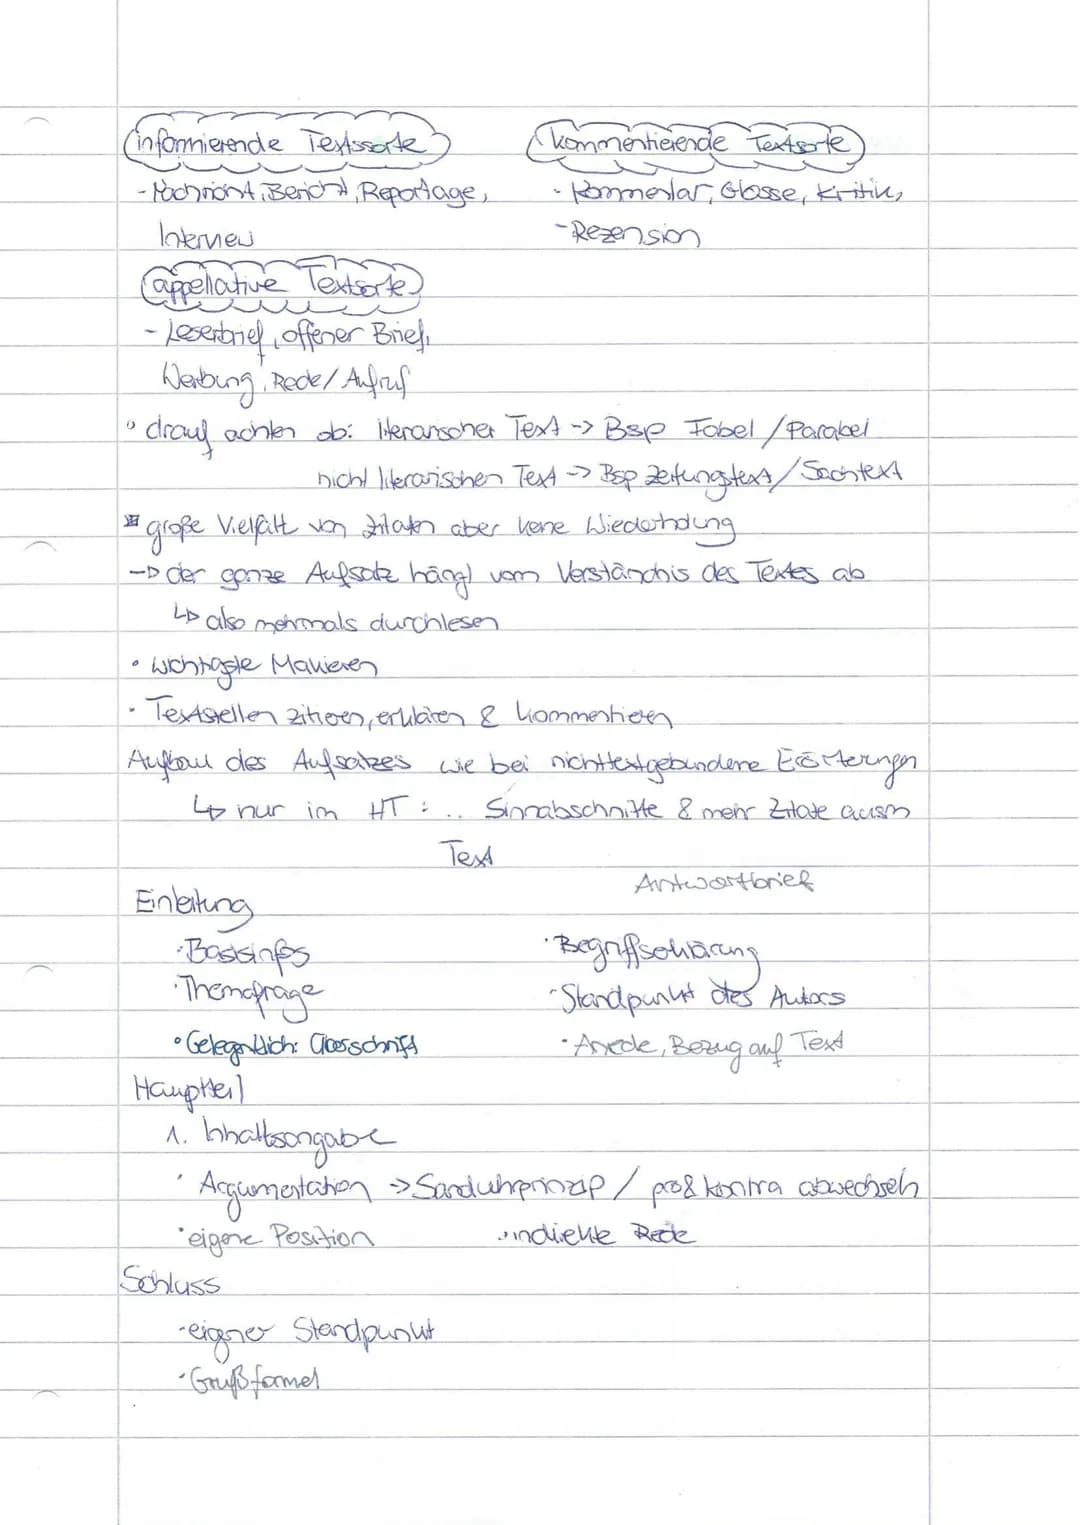 informierende Textssorte
kommentierende Textsorte
- Nachricht, Bericht, Reportage,
Interview
- Kommentar, Glosse, Kritik,
- Rezension
appellative Textsorte
- Leserbrief, offener Brief,
Werbung, Rede/Aufruf
• drauf achten ob: literarischer Text -> Bsp Fabel / Parabel
nicht literarischen Text -> Bsp Zeitungstext/Sachtext
große Vielfalt von Zitaten aber keine Wiederholung
-> der ganze Aufsatz hängt vom Verständnis des Textes ab
↳ also mehrmals durchlesen
• wichtigste Makieren
• Textstellen zitieren, erklären & kommentieren
Aufbau des Aufsatzes wie bei nichttextgebundene Erörterungen
↳ nur im HT : .. Sinnabschnitte & mehr Zitate ausm
Text
Antwortbrief
Einleitung
• Basisinfos
• Begriffserklärung
• Themafrage
- Standpunkt des Autors
• Gelegentlich: Überschrift
• Anrede, Bezug auf Text
Hauptteil
1. Inhaltsangabe
• Argumentation -> Sanduhrprinzip / pro & kontra abwechseln
• eigene Position
• indirekte Rede
Schluss
- eigener Standpunkt
• Grußformel